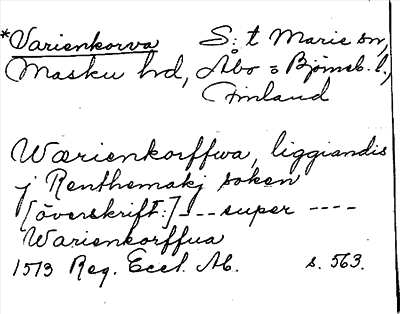 *Varienkorva S:t Marie sn,
Masku hd, Åbo o Björneb. l.,
Finland
Wærienkorffwa, liggiandis
j Renthemakj soken
[överskrift:] --- super ----
Warienkorffua
1513 Reg. Eccl. Ab. s. 563.